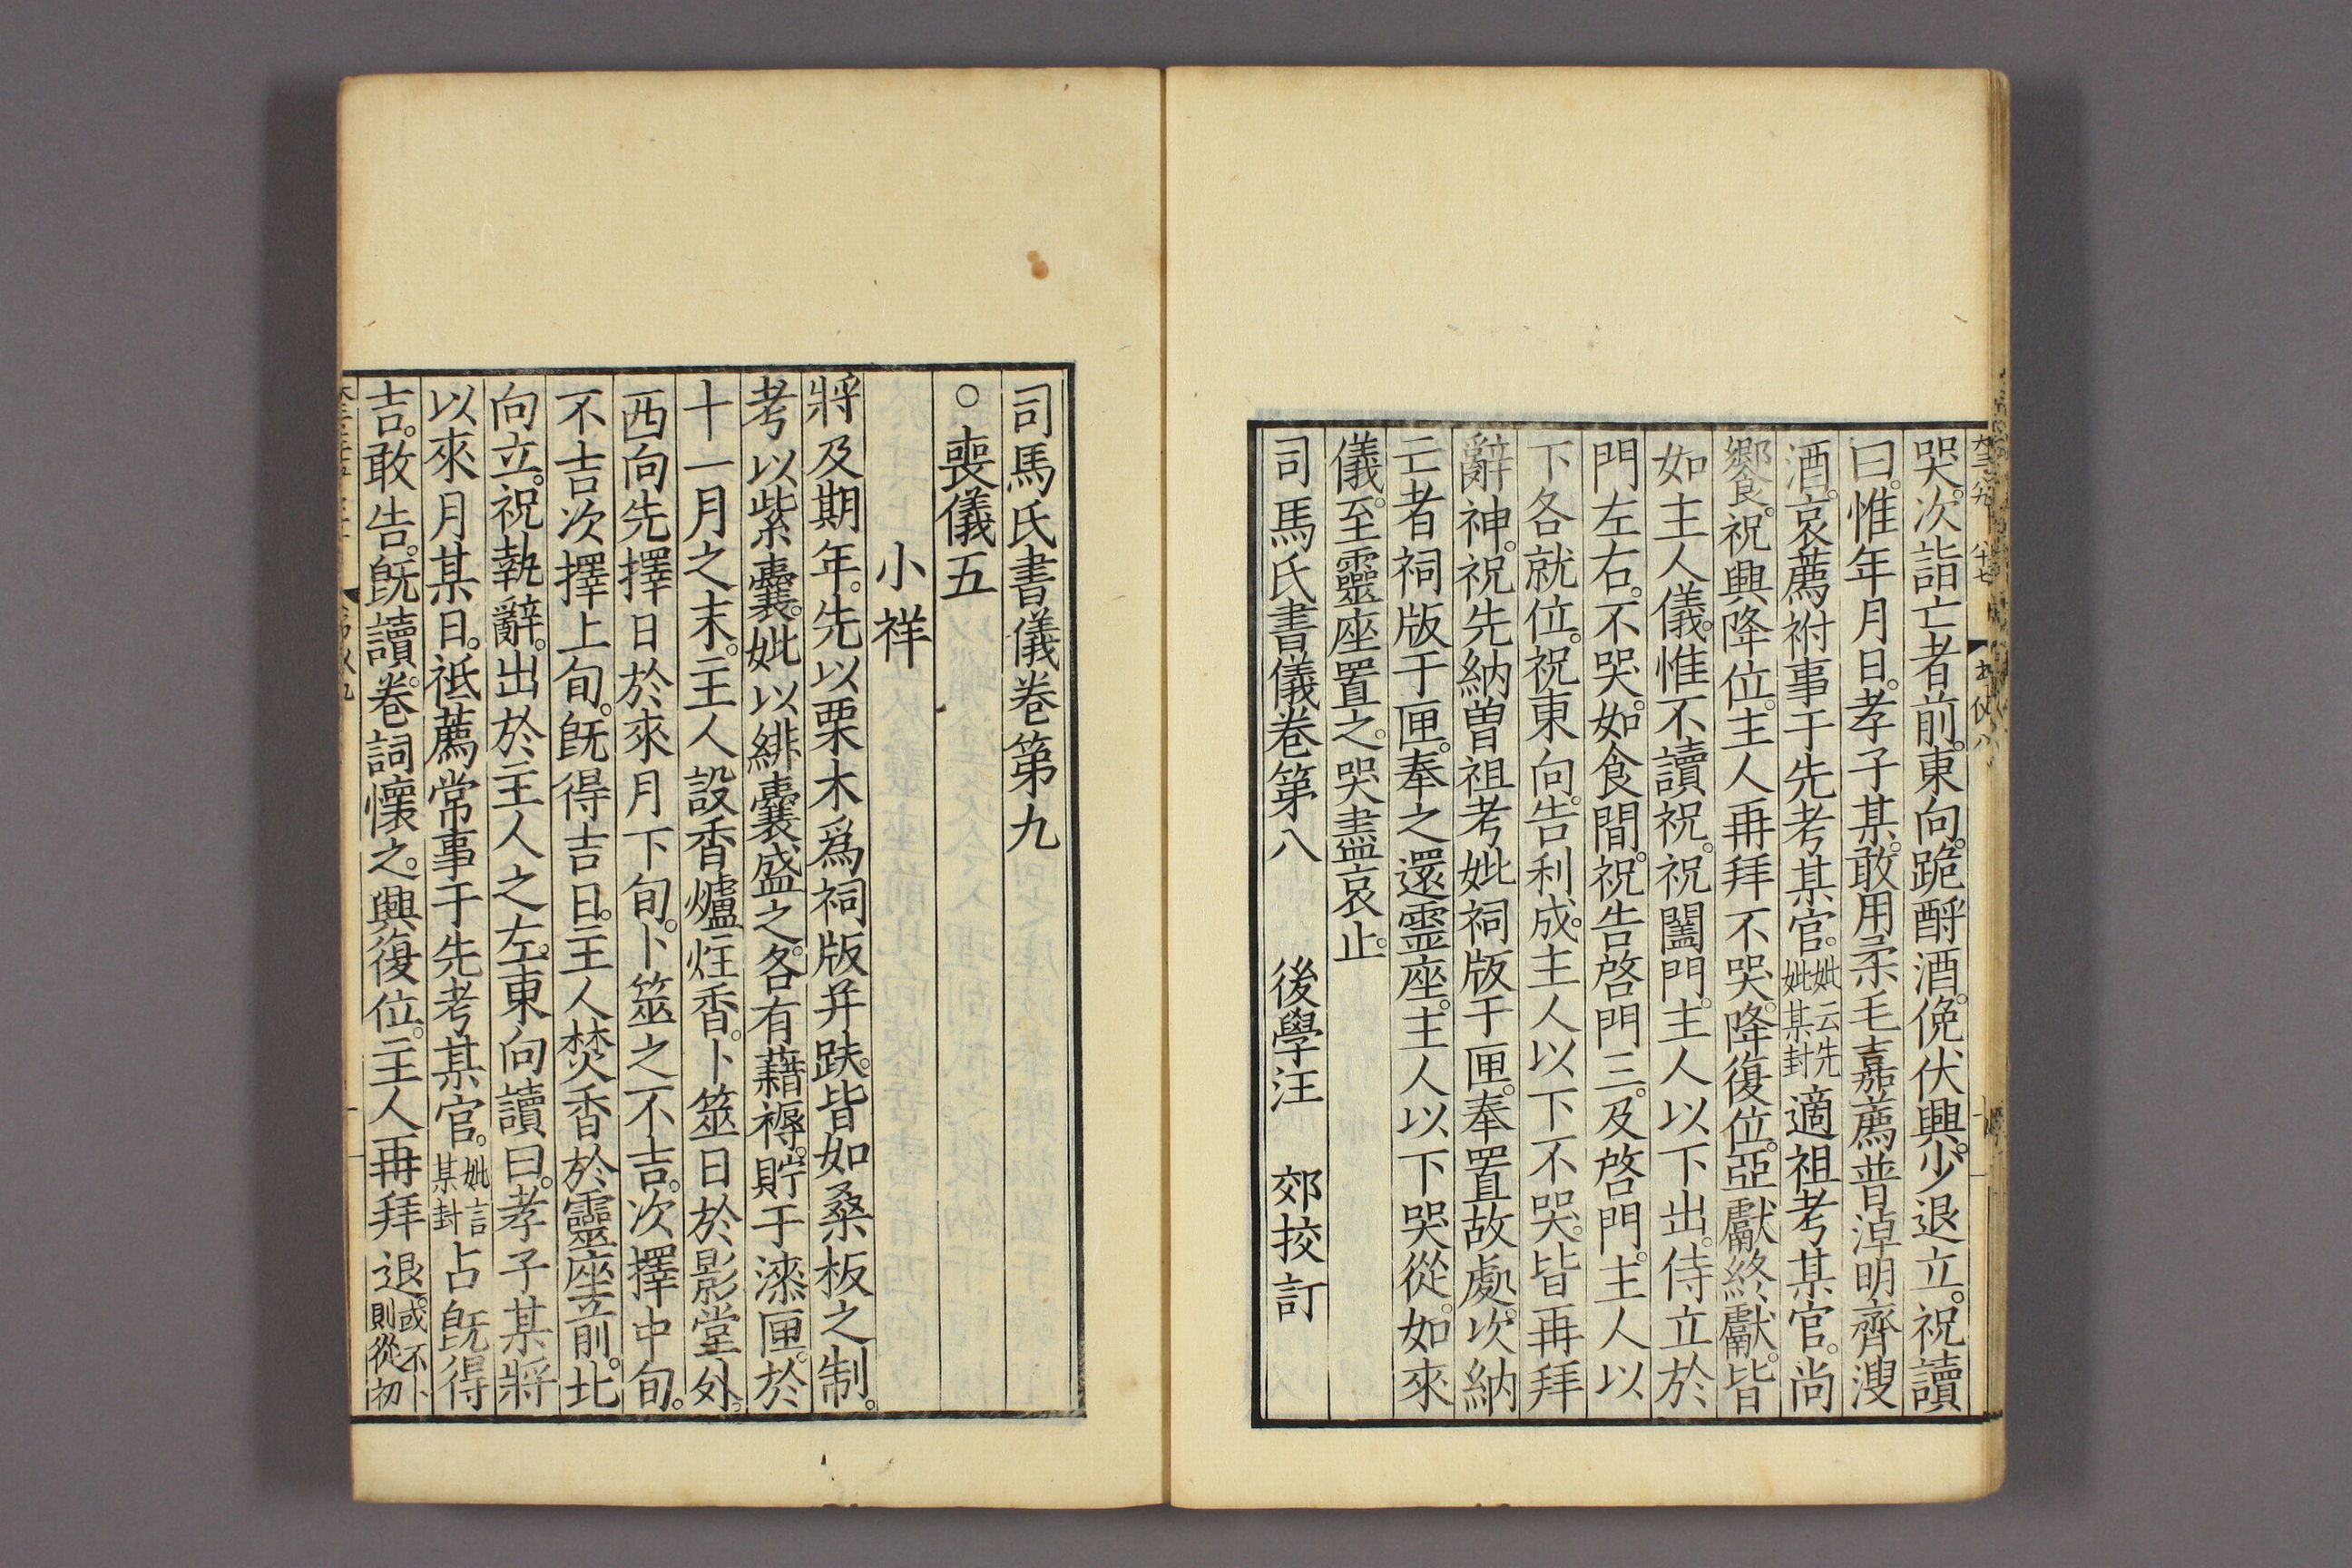 哭。次詣亡者前。東向。跪酹酒。俛伏興。少退立。祝讀
曰。惟年月日。孝子某。敢用柔毛嘉薦普淖明齊溲
酒。哀薦祔事于先考某官。妣云先妣某封適祖考某官。尚
饗。祝興降位。主人再拜不哭。降復位。亞獻終獻。皆
如主人儀。惟不讀祝。祝闔門。主人以下出。侍立於
門左右。不哭。如食間。祝告啓門三。及啓門。主人以
下各就位。祝東向。告利成。主人以下不哭。皆再拜
辭神。祝先納曾祖考妣祠版于匣。奉置故處。次納
亡者祠版于匣。奉之還靈座。主人以下哭從。如來
儀。至靈座置之。哭盡哀止。
司馬氏書儀卷第八 後學汪 郊挍訂
司馬氏書儀卷第九
○喪儀五
小祥
將及期年。先以栗木爲祠版并趺。皆如桑板之制。
考以紫囊。妣以緋囊盛之。各有藉褥。貯于漆匣。於
十一月之末。主人設香爐炷香。卜筮日於影堂外。
西向先擇日於來月下旬。卜筮之不吉。次擇中旬。
不吉次擇上旬。旣得吉日。主人焚香於靈座前。北
向立。祝執辭。出於主人之左。東向讀曰。孝子某將
以來月某日。祗薦常事于先考某官。妣言某封占旣得
吉。敢告。旣讀。卷詞懷之。興復位。主人再拜退。或不卜則從初